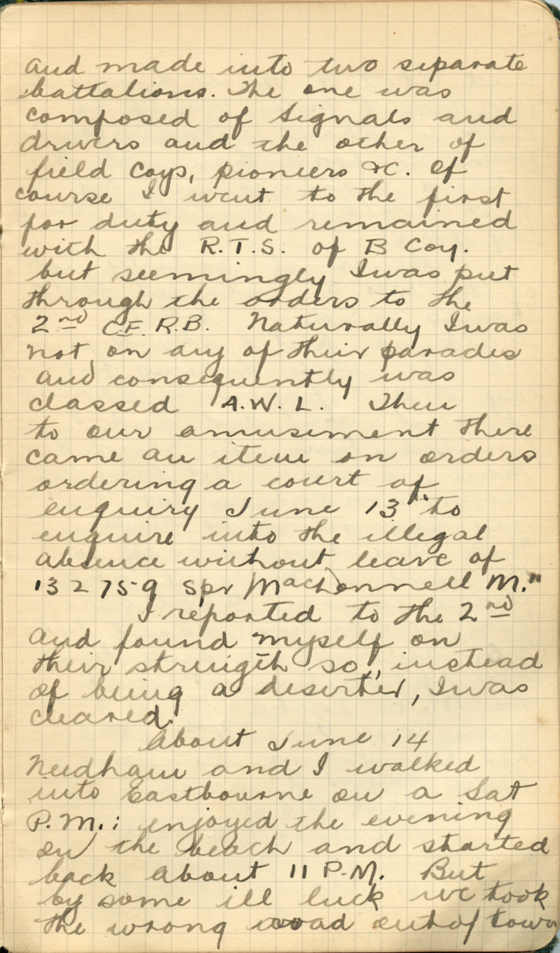 and made into two separate
battalions. The one was
composed of Signals and
drivers and the other of
field coys, pioneers &c. Of
course I went to the first
for duty and remained
with the R.T.S. of B Coy.
but seemingly I was put
through the orders to the
2nd C.E.R.B. Naturally I was
not on any of their parades
and consequently was
classed A.W.L. Then
to our amusement there
came an item on orders
ordering a court of
enquiry June 13 "to
enquire into the illegal
absence without leave of
132759 Spr MacDonnell M."
I reported to the 2nd
and found myself on
their strength so, instead
of being a deserter, I was
cleared.
About June 14
Needham and I walked
into Eastbourne on a Sat
P.M.; enjoyed the evening
on the beach and started
back about 11 P.M. But
by some ill luck we took
the wrong road out of town